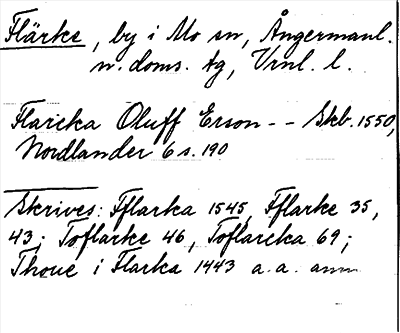 Flärke, by i Mo sn, Ångermanl.
n. doms. tg, Vrnl. l.
Flarcka Oluff Erson - - Skb. 1550,
Nordlander 6 s. 190
Skrives: Fflarka 1545, Fflarke 35,
43; Toflarke 46, Toflarcka 69;
Thoue i Flarka 1443 a. a. anm